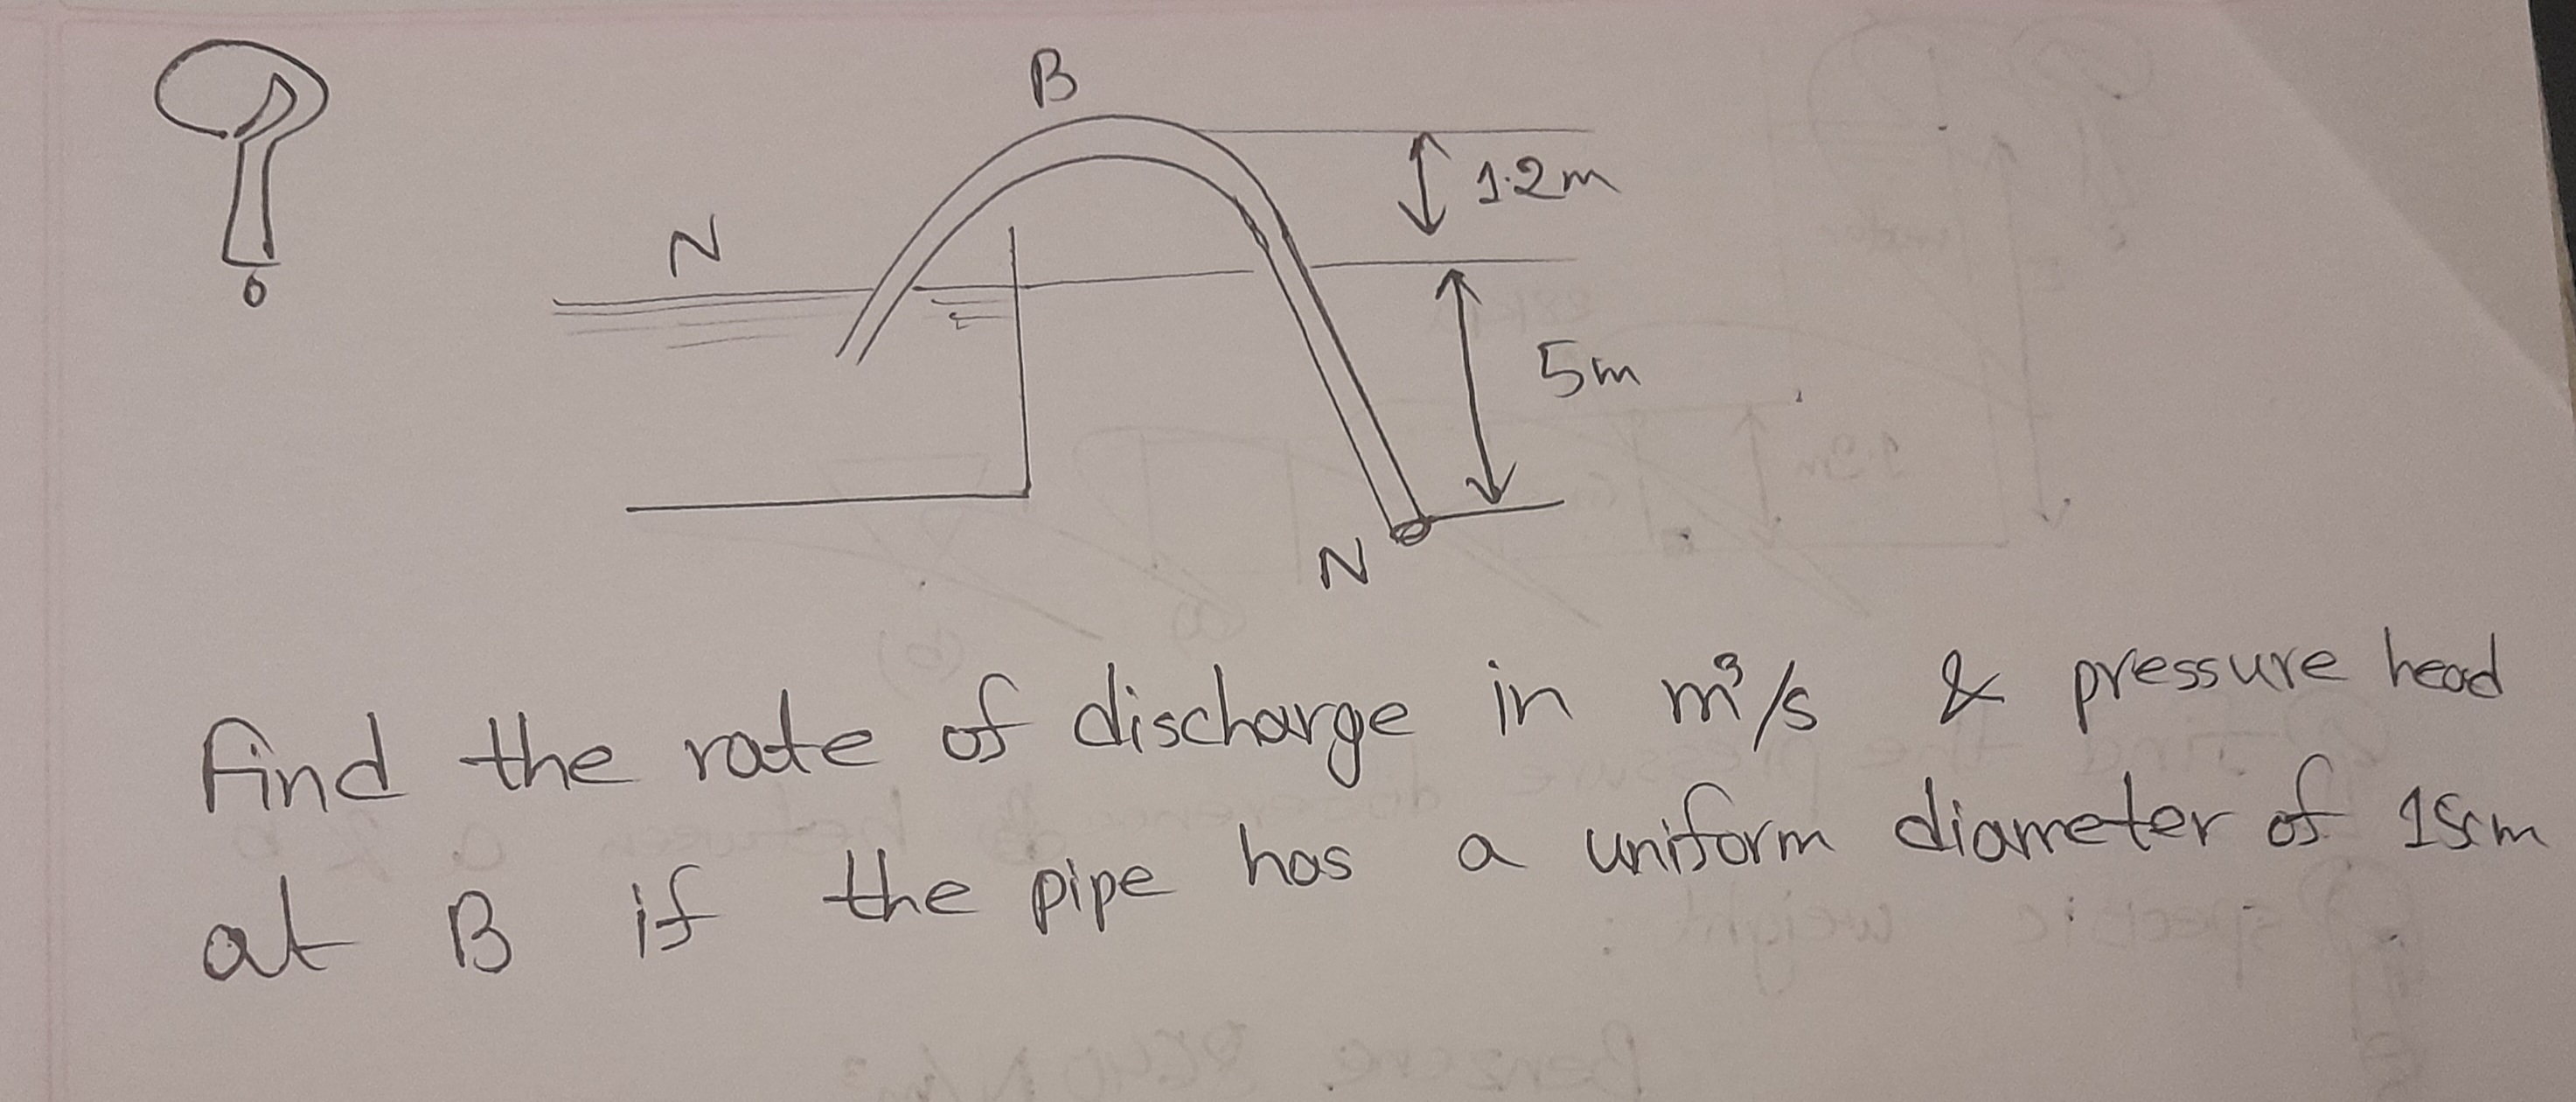 B
1.2m
N
5m
N
find the rate of discharge in m³/s & pressure head
at B if the pipe has a uniform diameter of 15cm